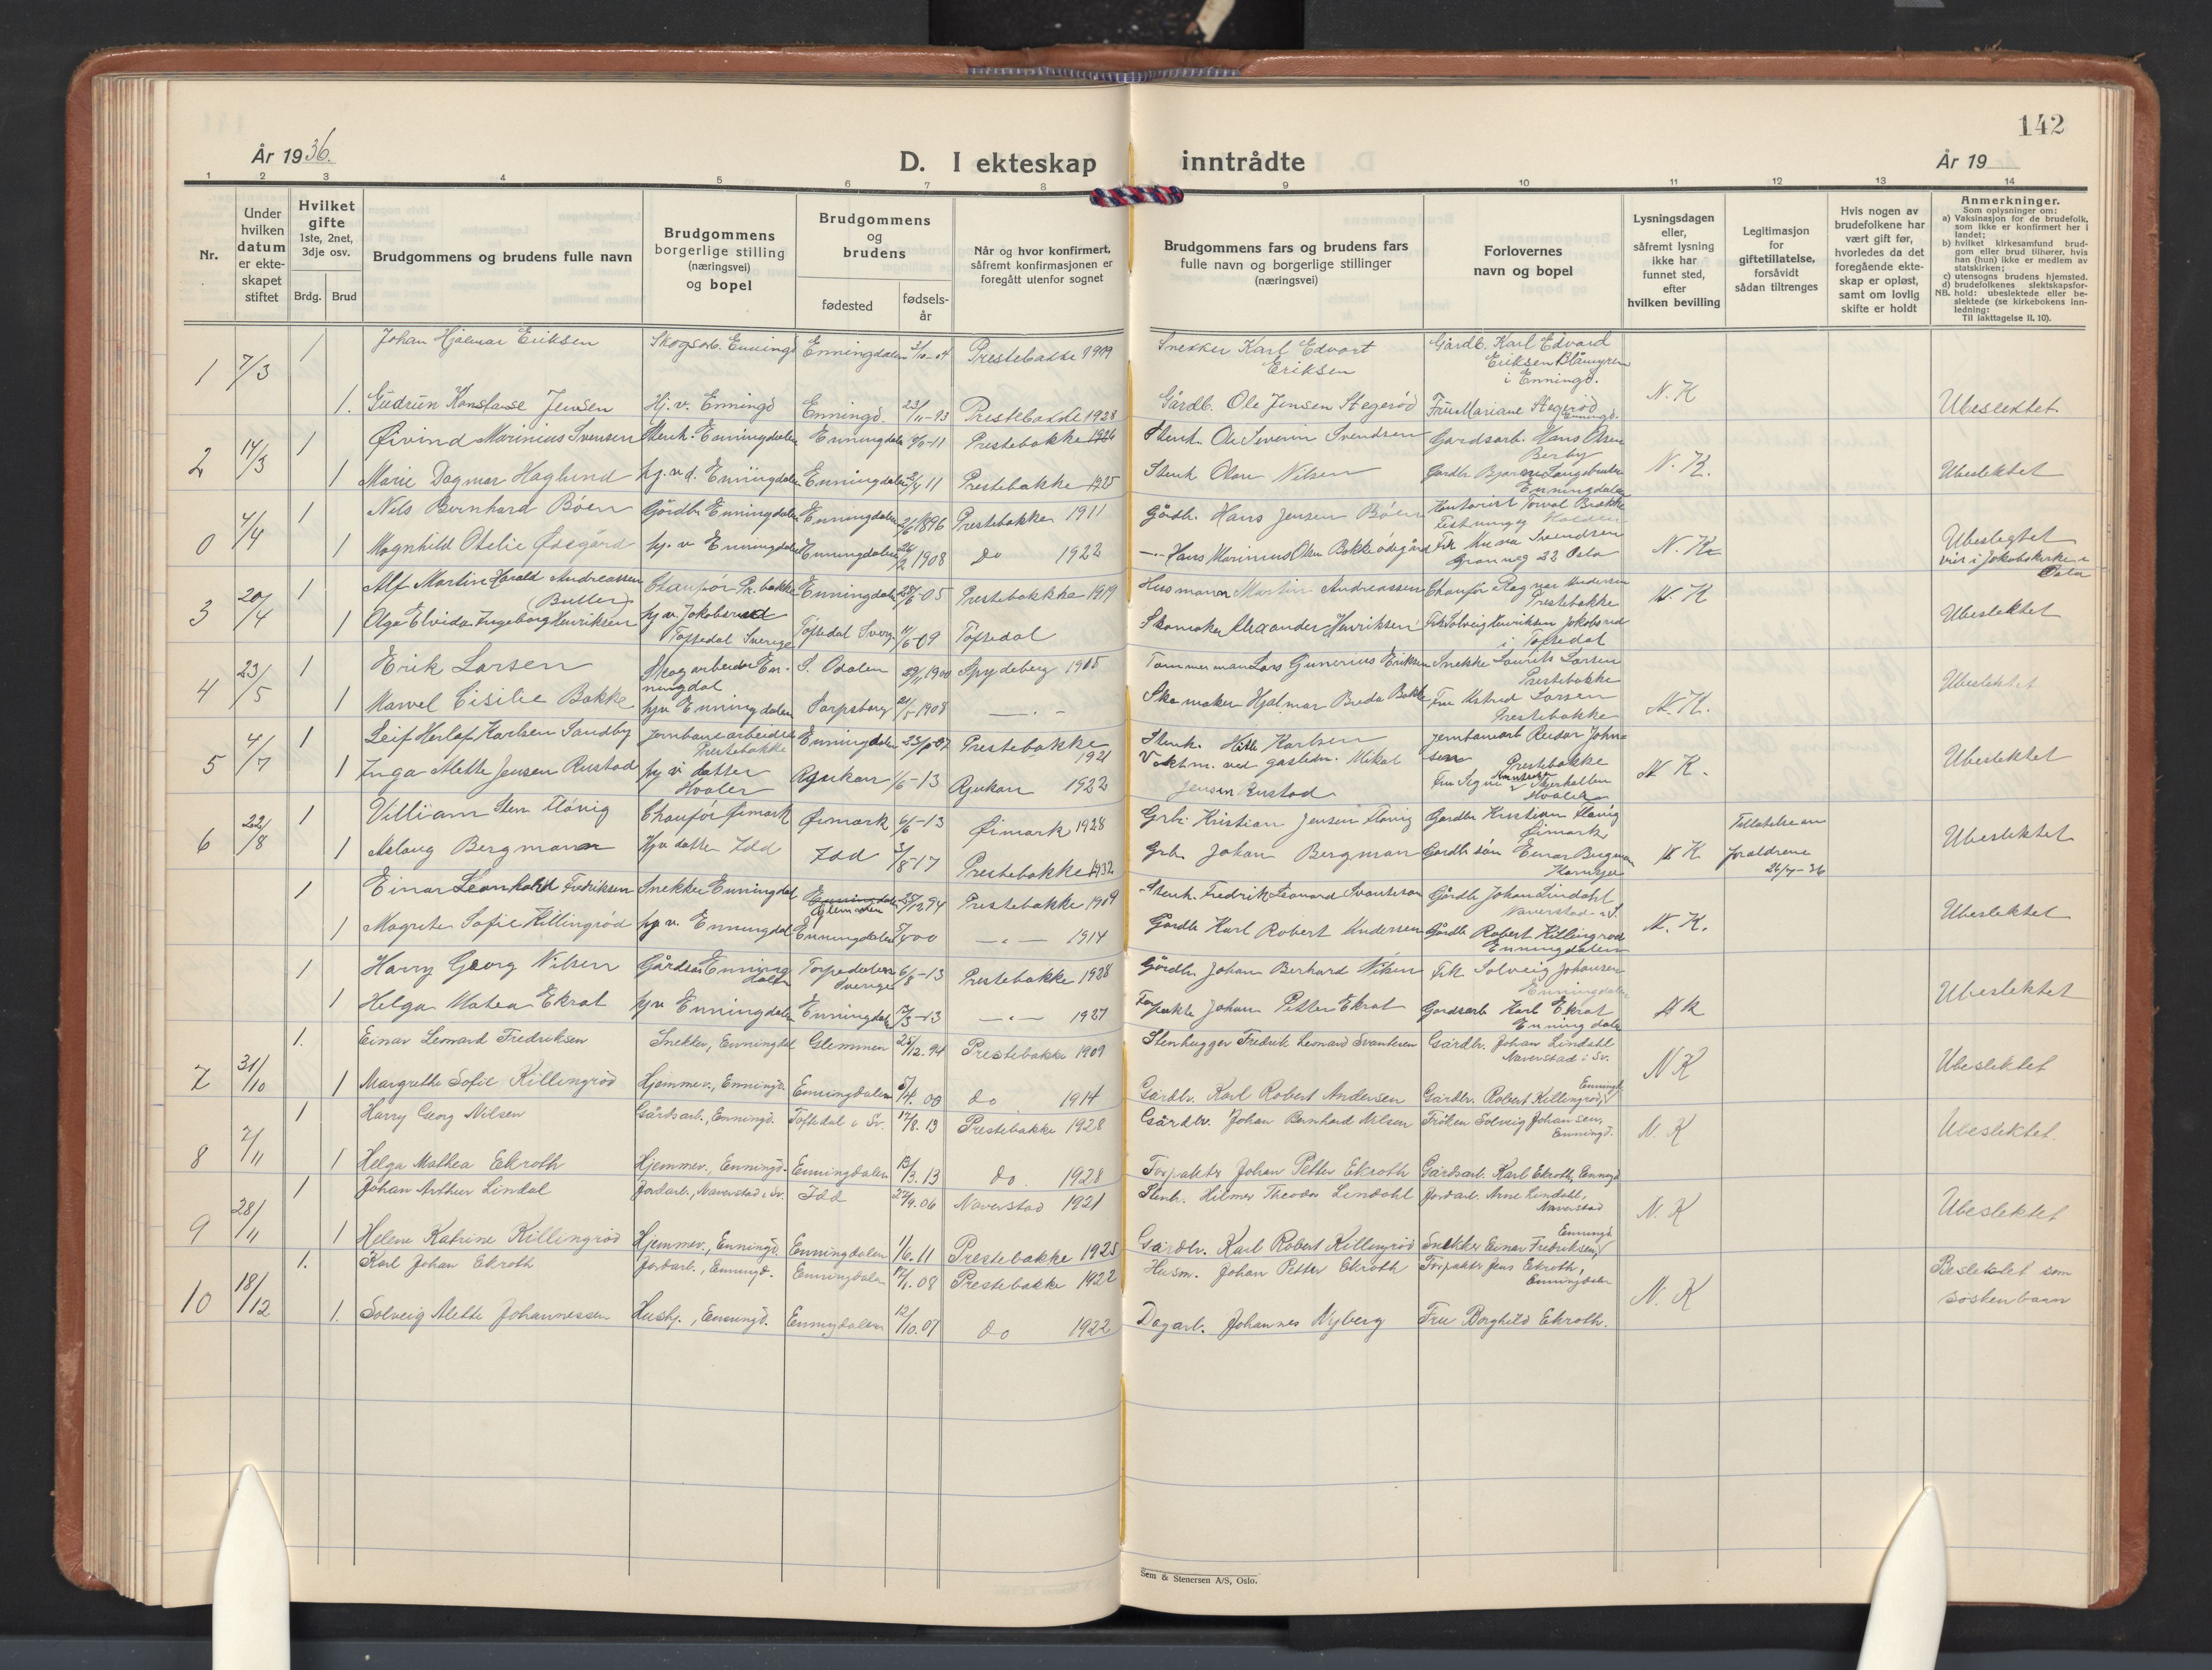 142
År 1936.
D. I ekteskap inntrådte
År 19
1 2 3 4 5 6 7 8 9 10 11 12 13 14
Nr.
Under hvilken datum er ekteskapet stiftet
Hvilket gifte 1ste, 2net, 3dje osv.
Brdg. Brud
Brudgommens og brudens fulle navn
Brudgommens borgerlige stilling (næringsvei) og bopel
Brudgommens og brudens
fødested
fødsels-år
Når og hvor konfirmert, såfremt konfirmasjonen er foregått utenfor sognet
Brudgommens fars og brudens fars fulle navn og borgerlige stillinger (næringsvei)
Forlovernes navn og bopel
Lysningsdagen eller, såfremt lysning ikke har funnet sted, efter hvilken bevilling
Legitimasjon for giftetillatelse, forsåvidt sådan tiltrenges
Hvis nogen av brudefolkene har vært gift før, hvorledes da det foregående ekteskap er opløst, samt om lovlig skifte er holdt
Anmerkninger.
Som oplysninger om:
a) Vaksinasjon for de brudefolk, som ikke er konfirmert her i landet;
b) hvilket kirkesamfund brudgom eller brud tilhører, hvis han (hun) ikke er medlem av statskirken;
c) utensogns brudens hjemsted.
d) brudefolkenes slektskapsforhold: ubeslektede eller beslektede (se kirkebokens innledning:
NB.
Til iakttagelse II. 10).
1 7/3 1 Johan Hjalmar Eriksen Skogsarb. Enningd Enningdalen 3/10-04 Prestebakke 1919 Snekker Karl Edvart Eriksen Gårdb. Karl Edvard Eriksen Blåmyren i Enningd. N.K
1. Gudrun Konstanse Jensen Hj.v. Enningd Enningd. 23/11-13 Prestebakke 1928 Gårdb. Ole Jensen Stegerød Fru Mariane Stegerød Enningd. Ubeslektet.
2 14/3 1 Øivind Marinius Svensen Stenh. Enningdalen Enningdalen Prestebakke 1926 Stenh. Ole Severin Svendsen Gardsarb. Hans Olsen Berby N.K.
1 Marie Dagmar Haglund hj.v.d. Enningdalen Enningdalen Prestebakke 1925 Stenh Olav Nilsen Enningdalen Ubeslektet
0 4/4 1 Nils Bernhard Böen Gårdbr Enningdalen Enningdalen 2/6 1896 Prestebakke 1911 Gårdb. Hans Jensen Böen Kontorist Torval Brække Halden
1 Magnhild Otelie Ødegård hj.v Enningdalen Enningdalen 1908 do 1922 Hans Marinius Olsen Bakke ødegård Frk Svendsen 22 Oslo N.K. Ubeslegtet
viet i Jakobskirke i Oslo
3 20/4 1 Alf Martin Harald Andreassen Butler Chauför Pr.bakke Enningdalen 28/6-05 Prestebakke 1919 Husmann Martin Andreassen Chauför Ragnar Andersen Prestebakke N.K
1 Olga Elvida Ingeborg Henriksen hj.v. Jakobsrud Töftedal Sverige Töftedal Sverg 11/6-09 Töftedal Skomaker Alexander Henriksen Frk Solveig Henriksen Jakobsrud i Töftedal Ubeslektet
4 23/5 1 Erik Larsen Skogarbeider Enningdal S. Odalen 29/11 1900 Spydeberg 1905 Tømmermann Lars Gunerius Eriksen Snekke Laurits Larsen Prestebakke
1 Marvel Cisilie Bakke hjv Enningdalen Sarpsborg 21/5-1908 — " — Skomaker Hjalmar Breda Bakke Fru Astrid Larsen Prestebakke N.K. Ubeslektet
5 4/7 1 Leif Herlof Karlsen Sandby Jernbanearbeider Prestebakke Enningdalen Prestebakke 1921 Stenh. Karlsen Jernbanearb Reidar Johnsen Prestebakke N.K.
1 Inga Mette Jensen Rustad hj.v datter Hvaler Rjukan 1/6-13 Rjukan 1922 Vaktm. ved gasledn. Mikal Jensen Rustad Fru Signe Hvaler Ubeslektet
6 22/8 1 Villiam Sten Flåvig Chauför Øimark Øimark 6/6-13 Øimark 1928 Grbr Kristian Jensen Flåvig Gårdbr Kristian Flåvig Øimark Tillatelse av
1 Aslaug Bergmann Hjv datter Idd Idd 3/8-17 Prestebakke 1932 Grbr Johan Bergman Gårdbr sön Einar Bergman Kornsjø N K foreldrene 26/7-36 Ubeslektet
1 Einar Leonhard Fredriksen Snekker Enningdal Enningdalen Glemmen 25/12 94 Prestebakke 1909 Stenh. Fredrik Leonard Svanteson Gårdb Johan Lindahl Naverstad i S.
1 Magrete Sofie Killingröd hj v. Enningdal Enningdalen 5/4 00 — " — 1914 Gårdb Karl Robert Andersen Gårdb Robert Killingröd Enningdalen N.K. Ubeslektet
1 Harry Georg Nilsen Gårdsar Enningdalen Torpedalen Sverige 6/8-13 Prestebakke 1928 Gårdbr. Johan Berhard Nilsen Frk Solveig Johansen Enningdalen
1 Helga Matea Ekrot hjv Enningdalen Enningdalen 12/3-13 — " — 1927 Forpakte Johan Petter Ekrot Gårdsarb Karl Ekrot Enningdalen N K Ubeslektet
7 31/10 1. Einar Leonard Fredriksen Snekker, Enningdal Glemmen 25/12. 94 Prestebakke 1909 Stenhugger Fredrik Leonard Svantesen Gårdbr. Johan Lindahl Naverstad i Sv. N K
1 Margrethe Sofie Killingröd Hjemmev., Enningd. Enningdalen 5/4. 00 do 1914 Gårdbr. Karl Robert Andersen Gårdbr. Robert Killingröd, Enningd. Ubeslektet
8 7/11 1 Harry Georg Nilsen Gårdsarb., Enningd. Töftedal i Sv. 17/8. 13 Prestebakke 1928 Gårdbr. Johan Bernhard Nilsen Fröken Solveig Johansen, Enningd. N.K
1 Helga Mathea Ekroth Hjemmev., Enningd. Enningdalen 13/3. 13 do. 1928 Forpakter Johan Petter Ekroth Gårdsarb. Karl Ekroth, Enningd Ubeslektet.
9 28/11 1 Johan Arthur Lindal Jordarb., Naverstad i Sv. Idd 27/9. 06 Naverstad 1921 Stenh. Hilmer Theodor Lindahl Jordarb. Arne Lindahl, Naverstad N.K
1 Helene Katrine Killingröd Hjemmev., Enningd. Enningdalen 1/6. 11 Prestebakke 1925 Gårdbr. Karl Robert Killingröd Snekker Einar Fredriksen, Enningd. Ubeslektet
10 18/12 1. Karl Johan Ekroth Jordarb., Enningd. Enningdalen 17/1. 08 Prestebakke 1922 Husm. Johan Petter Ekroth Forpakter Jens Ekroth, Enningdalen N.K Beslektet som söskenbarn
1. Solveig Alette Johannessen Hushj., Enningd. Enningdalen 12/10. 07 do 1922 Dagarb. Johannes Nyberg Fru Borghild Ekroth.
Sem & Stenersen A/S, Oslo.